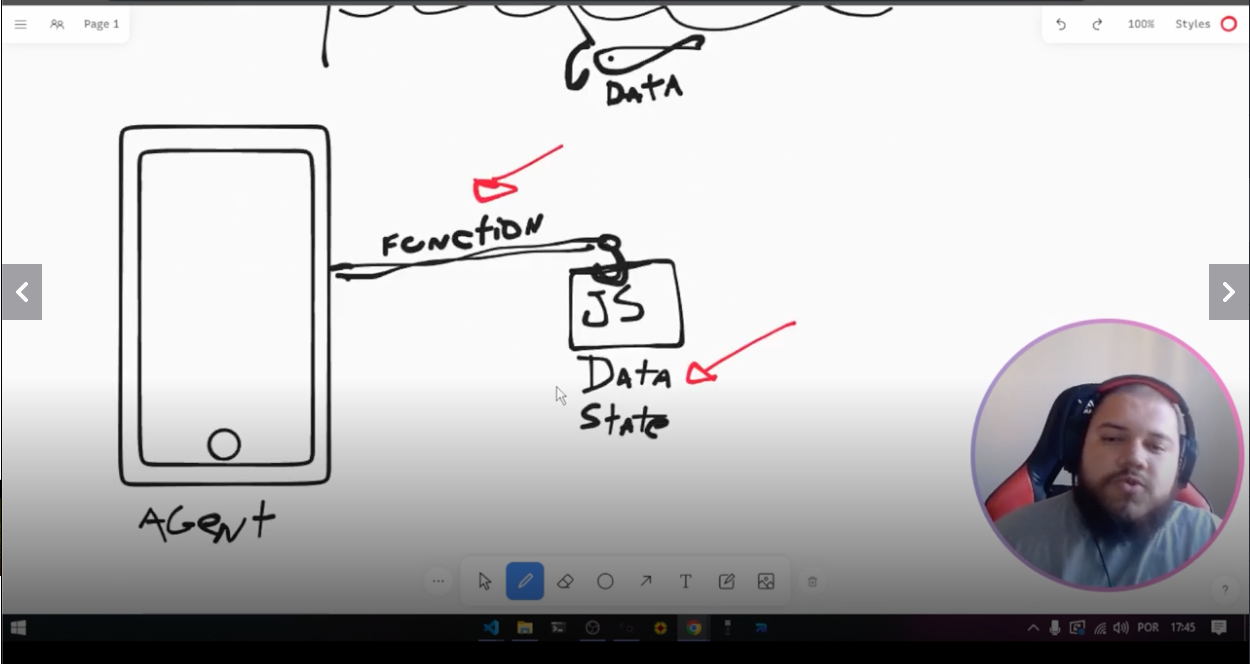 Page 1
100%
Styles
DATA
FUNCTION
JS
DATA
STATE
AGENT
T
?
POR
17:45